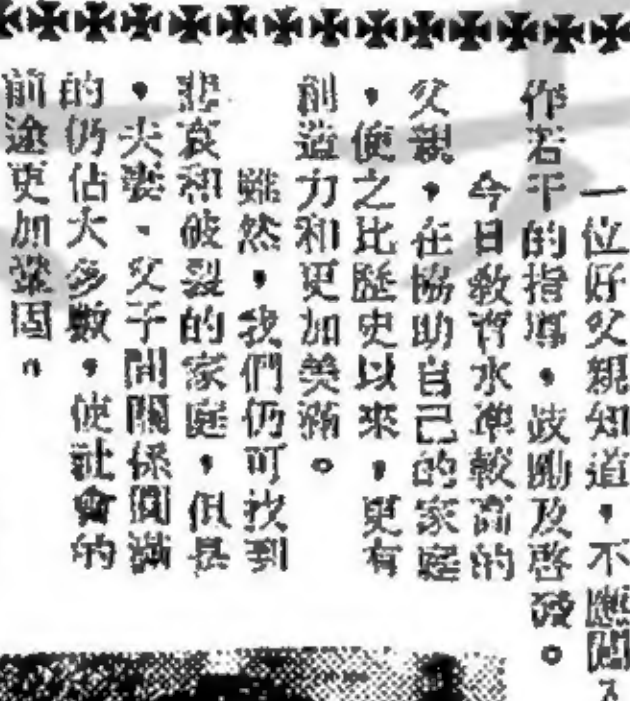 一位好父親知道,不應
作若干的指導,鼓勵及啓發。
今日教育水準較高的
父親,在協助自己的家庭
,使之比歷史以來,更有
創造力和更加美滿。
雖然,我們仍可找到
悲哀和破裂的家庭,但是
,夫妻、父子間關係圓滿
的仍佔大多數,使社會的
前途更加鞏固。